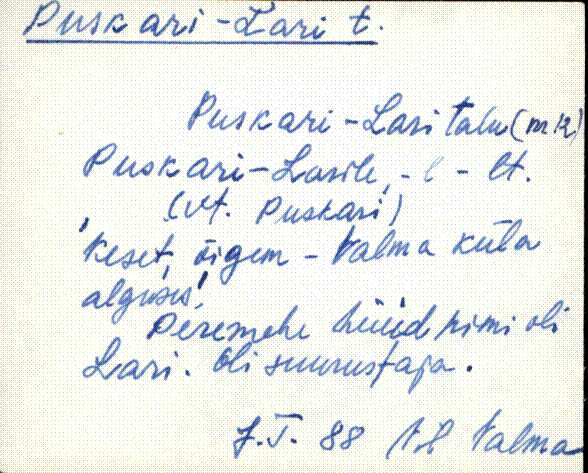 Puskari-Lari t.
Puskari-Lari talu (mk)
Puskari-Larile, -l - lt.
(vt. Puskari)
"Keset, õigem - Valma küla
alguses."
Peremehe hüüdnimi oli
Lari. Oli suurustaja.
J.T. 88 Valma